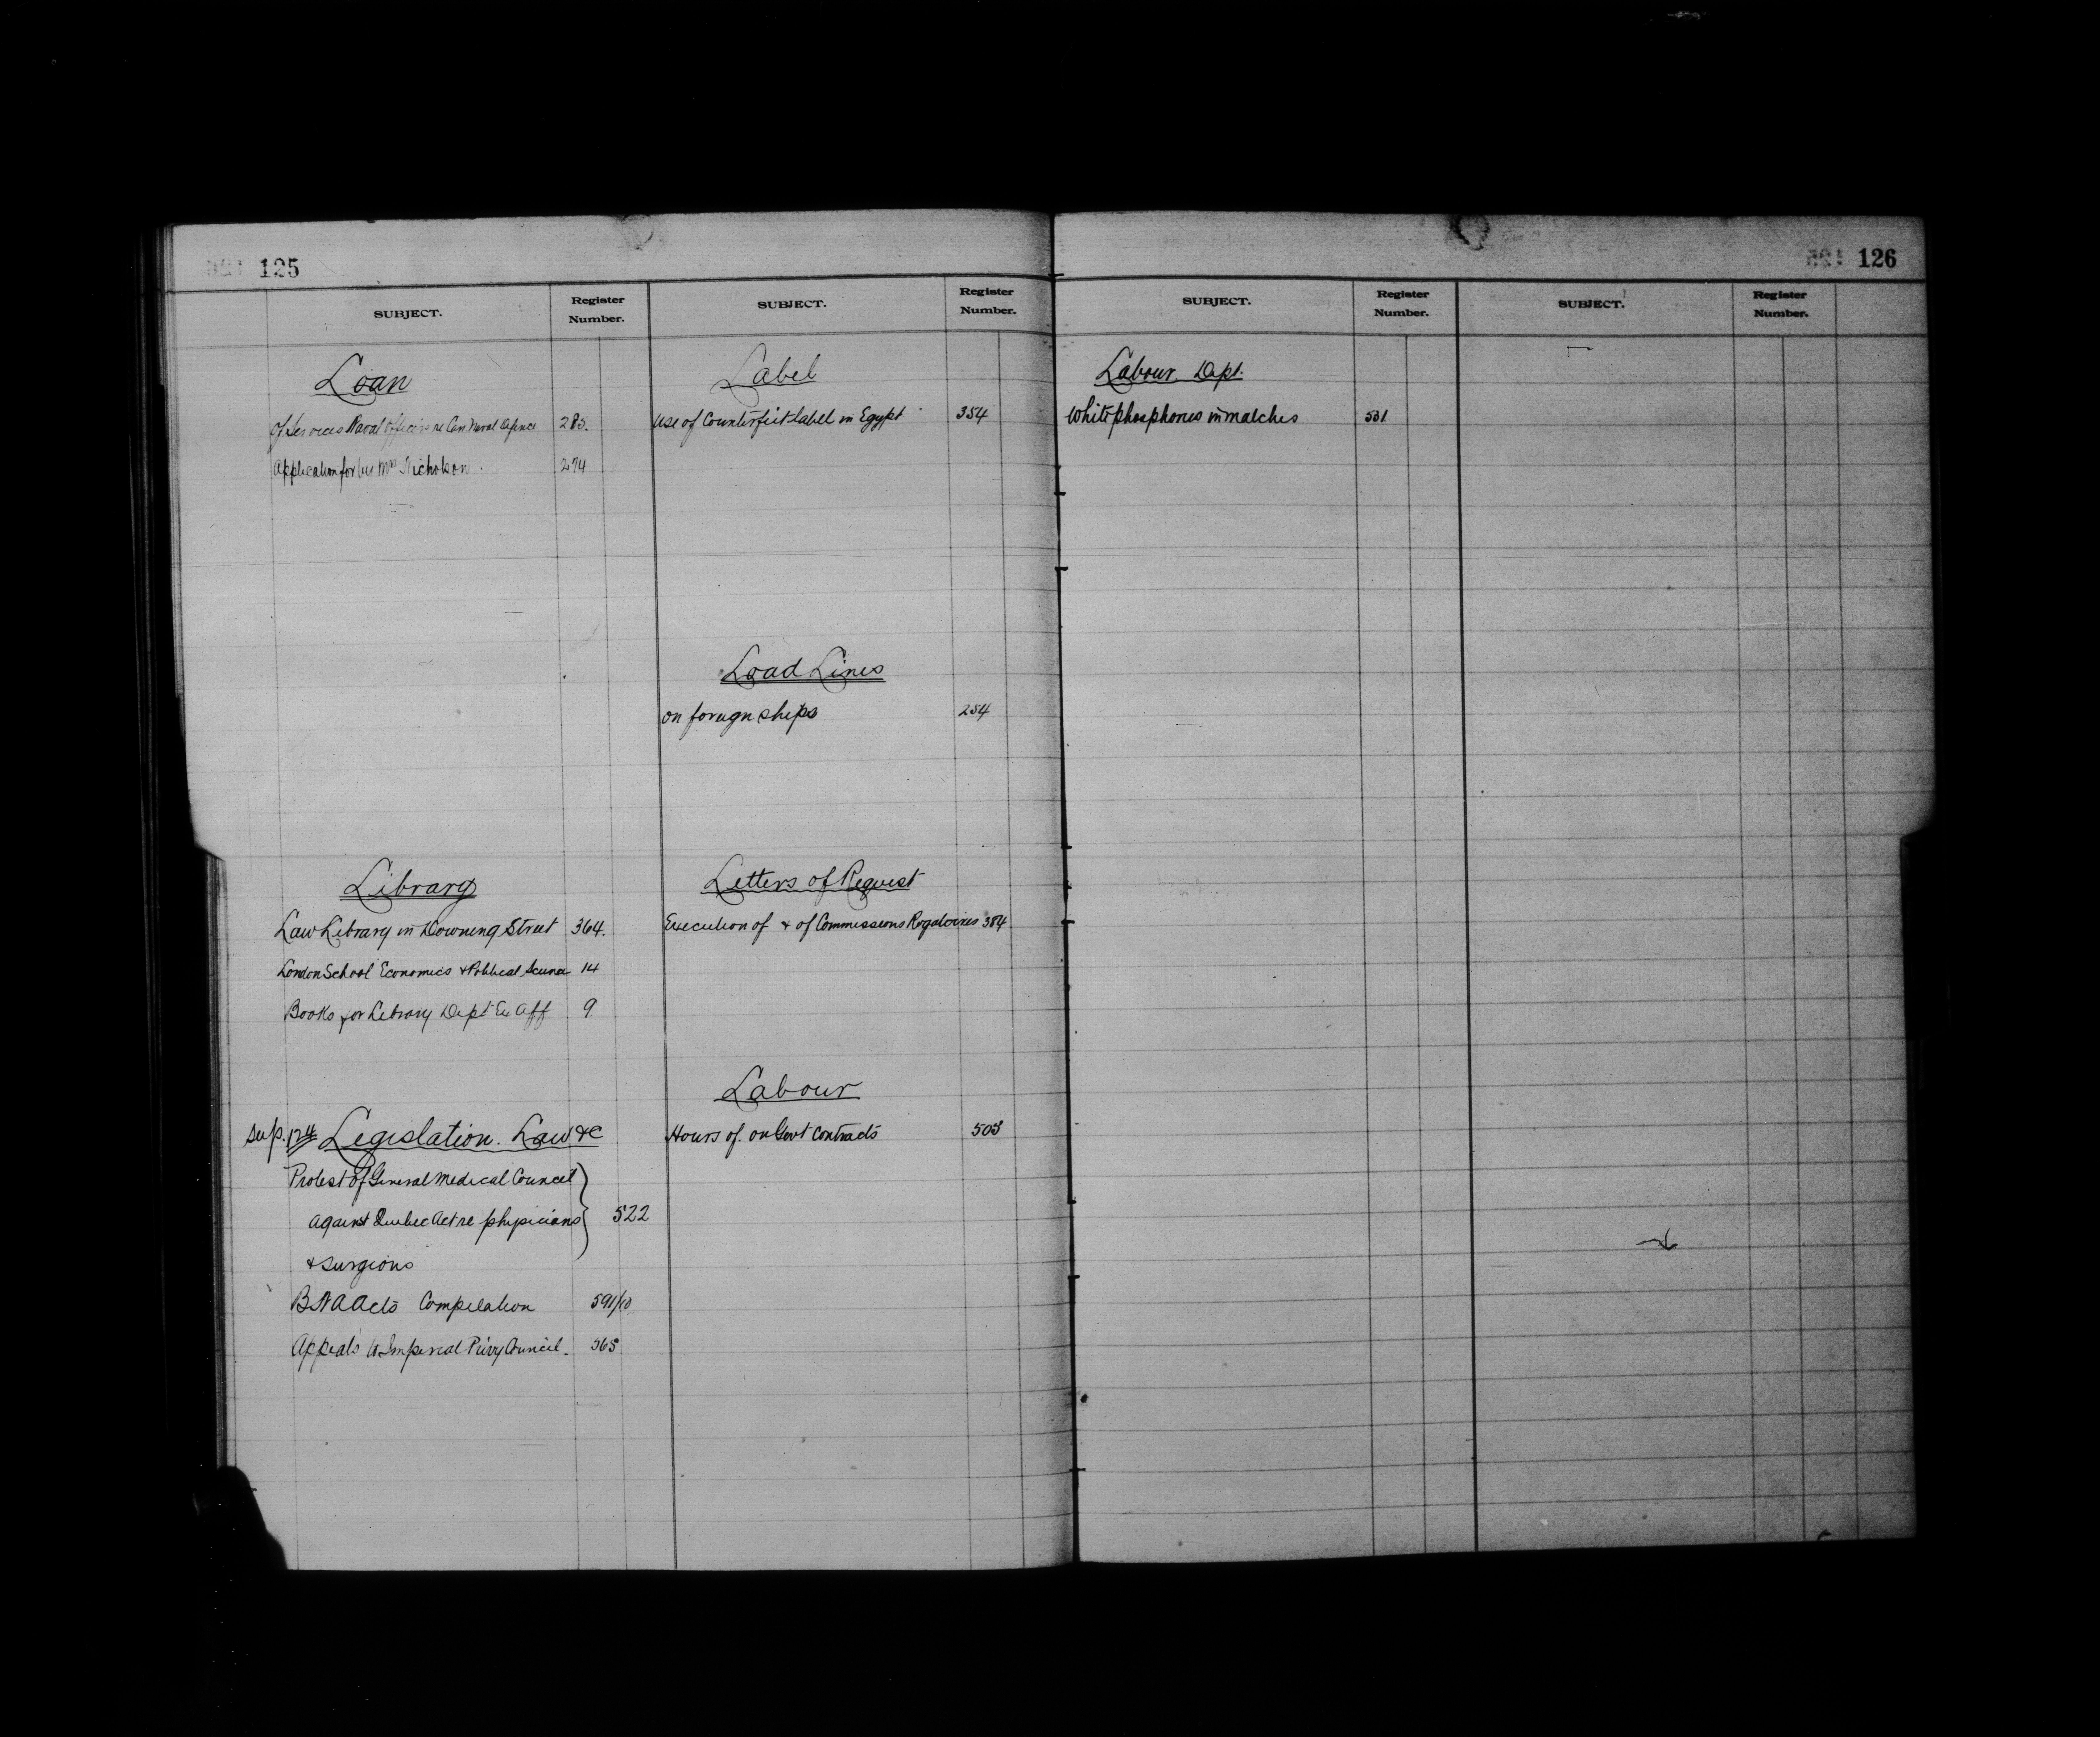 125
SUBJECT.
Register Number.
Loan
Of Services Naval Officers re Can Naval
285.
Application for by Mrs Nicholson.
274
Library
Law Library in Downing Street 364.
London School Economics & Political Science 14
Books for Library Dept Ex Aff 9
Sup. 124 Legislation. Law &c
Protest of General Medical Council
against Quebec Act re physicians 522
& surgions
B N A Acts Compilation 591/10
Appeals to Imperial Privy Council. 365
SUBJECT.
Register Number.
Label
Use of Counterfeit label in Egypt 354
Load Lines
on foreign ships 254
Letters of Request
Execution of & of Commissions Rogatoires 384
Labour
Hours of. on Govt Contracts 505
126
SUBJECT.
Register Number.
Labour Dept.
White phosphorus in matches 531
SUBJECT.
Register Number.